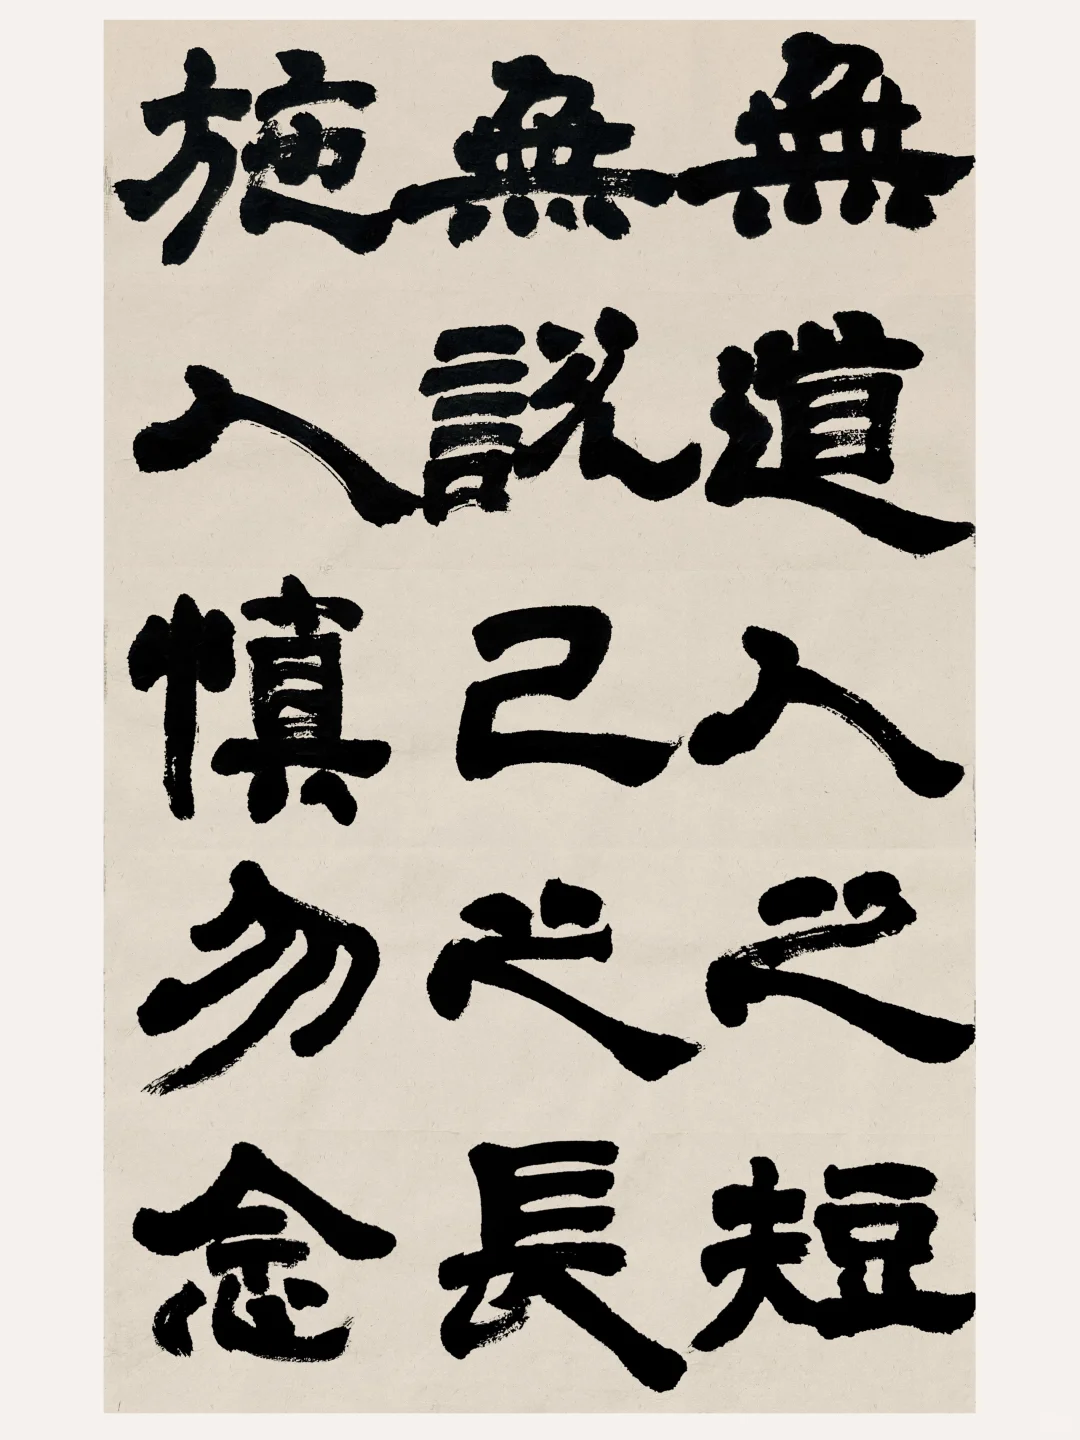 無道人之短
無説己之長
施人慎勿念